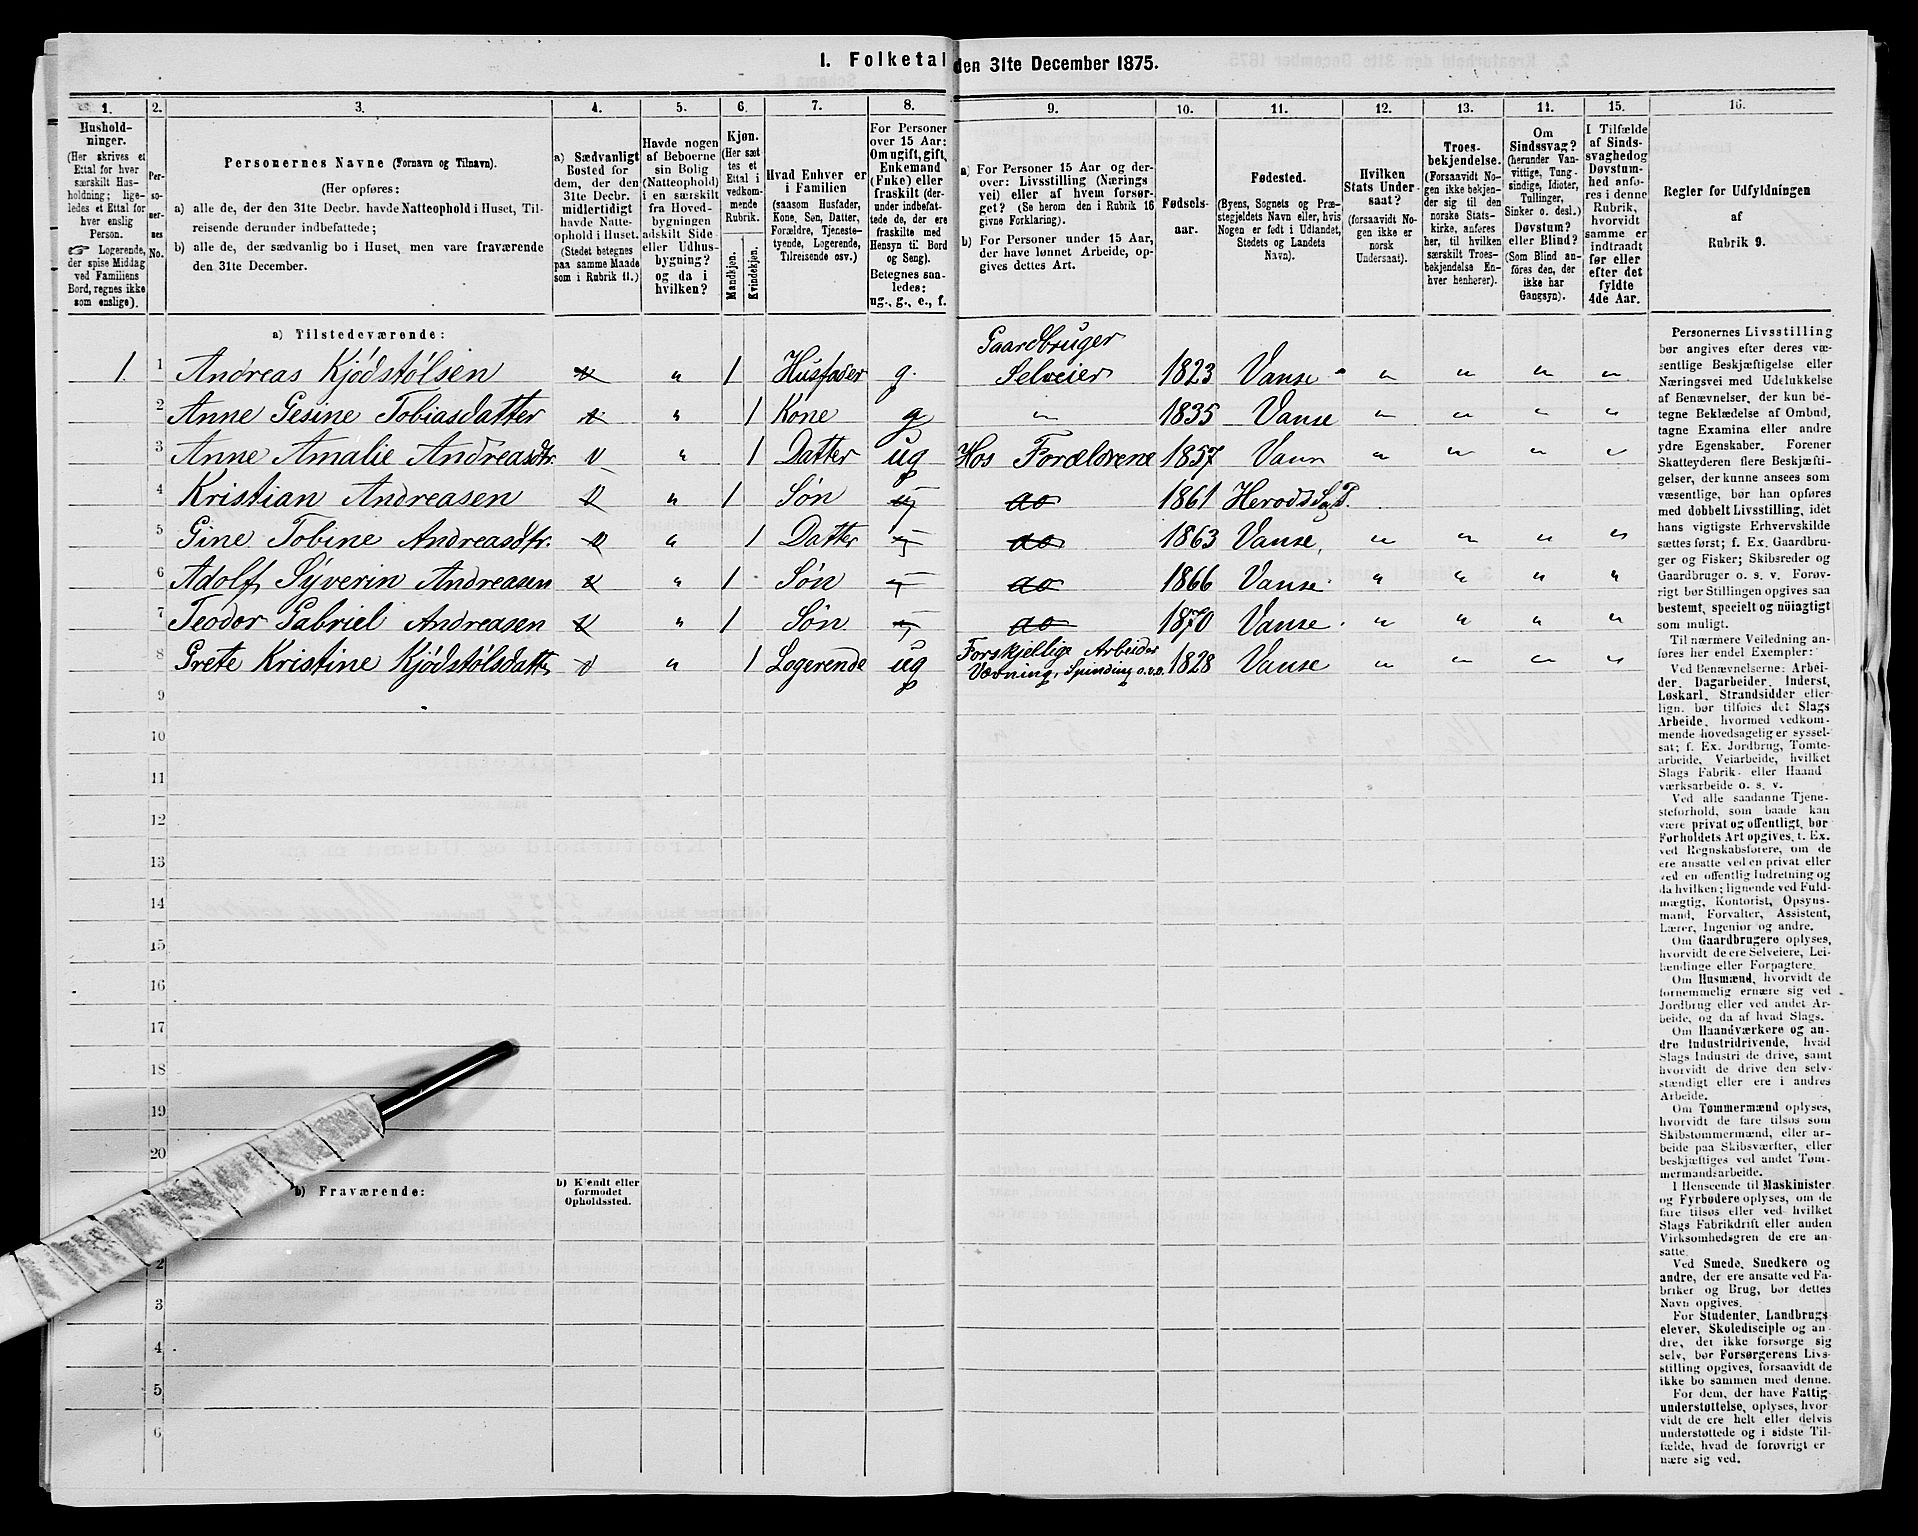 I. Folketal den 31te December 1875.
1. 2. 3. 4. 5. 6. 7. 8. 9. 10. 11. 12. 13. 14. 15. 16.
Husholdninger.
(Her skrives et
Ettal for hver
særskilt Husholdning;
ligeledes et Ettal for
hver enslig
Person.
☞ Logerende,
der spise Middag
ved Familiens
Bord, regnes ikke
som enslige).
Personernes No.
Personernes Navne (Fornavn og Tilnavn).
(Her opføres:
a) alle de, der den 31te Decbr. havde Natteophold i Huset, Tilreisende derunder indbefattede;
b) alle de, der sædvanlig bo i Huset, men vare fraværende
den 31te December.
a) Sædvanligt
Bosted for
dem, der den
31te Decbr.
midlertidigt
havde Natteophold i Huset.
(Stedet betegnes
paa samme Maade
som i Rubrik 11.)
Havde nogen
af Beboerne
sin Bolig
(Natteophold)
i en særskilt
fra Hovedbygningen
adskilt Side
eller Udhusbygning?
og da i
hvilken?
Kjøn.
(Her sættes et
Ettal i
vedkommende
Rubrik.
Mandkjøn.
Kvindekjøn.
Hvad Enhver er
i Familien
(saasom Husfader,
Kone, Søn, Datter,
Forældre, Tjenestetyende, Logerende,
Tilreisende osv.)
For Personer
over 15 Aar:
Om ugift, gift,
Enkemand
(Enke) eller
fraskilt (derunder indbefattede de, der ere
fraskilte med
Hensyn til Bord
og Seng).
Betegnes saaledes:
ug., g., e., f.
a) For Personer 15 Aar og derover: Livsstilling (Næringsvei) eller af hvem forsørget? (Se herom den i Rubrik 16
givne Forklaring).
b) For Personer under 15 Aar,
der have lønnet Arbeide, opgives dettes Art.
Fødselsaar.
Fødested.
(Byens, Sognets og Præstegjeldets Navn eller, hvis
Nogen er født i Udlandet,
Stedets og Landets
Navn).
Hvilken
Stats Undersaat?
(forsaavidt Nogen ikke er
norsk
Undersaat).
Troesbekjendelse.
(Forsaavidt Nogen ikke bekjender sig til den
norske Statskirke, anføres
her, til hvilken
særskilt Troesbekjendelse Enhver henhører).
Om
Sindssvag?
(herunder Vanvittige, Tungsindige, Idioter,
Tullinger,
Sinker o. desl.)
Døvstum?
eller Blind?
(Som Blind anføres den, der
ikke har
Gangsyn).
I Tilfælde
af Sindssvaghed og
Døvstumhed anføres i denne
Rubrik,
hvorvidt
samme er
indtraadt
før eller
efter det
fyldte
4de Aar.
Regler for Udfyldningen
af
Rubrik 9.
a) Tilstedeværende:
1. 1 Andreas Kjödstölsen v " 1 Husfader g. Gaardbruger Selveier 1823 Vanse " " " "
2 Anne Gesine Tobiasdatter v " 1 Kone g " 1835 Vanse " " " "
3 Anne Amalie Andreasdtr. v " 1 Datter ug Hos Forældrene 1857 Vanse " " " "
4 Kristian Andreasen v " 1 Sön ug do 1861 Herods S. P.
5 Gine Tobine Andreasdtr. v " 1 Datter – do 1863 Vanse, " " " "
6 Adolf Syverin Andreasen v " 1 Sön – do 1866 Vanse " " " "
7 Teodor Gabriel Andreasen v " 1 Sön – do 1870 Vanse " " " "
8 Grete Kristine Kjödstölsdatter v " 1 Logerende ug Forskjellige Arbeider Vævning, Spinding o.s.v. 1828 Vanse " " " "
9
10
11
12
13
14
15
16
17
18
19
20
b) Fraværende:
b) Kjendt eller
formodet
Opholdssted.
2
3
4
5
6
Personernes Livsstilling
bør angives efter deres væsentlige Beskjæftigelse eller
Næringsvei med Udelukkelse
af Benævnelser, der kun betegne Beklædelse af Ombud,
tagne Examina eller andre
ydre Egenskaber. Forener
Skatteyderen flere Beskjæftigelser, der kunne ansees som
væsentlige, bør han opføres
med dobbelt Livsstilling, idet
hans vigtigste Erhvervskilde
sættes først; f. Ex. Gaardbruger og Fisker; Skibsreder og
Gaardbruger o. s. v. Forøvrigt bør Stillingen opgives saa
bestemt, specielt og nøiagtigt
som muligt.
Til nærmere Veiledning anføres her endel Exempler:
Ved Benævnelserne: Arbeider, Dagarbeider, Inderst,
Løskarl, Strandsidder eller
lign. bør tilføies det Slags
Arbeide, hvormed vedkommende hovedsagelig er sysselsat; f. Ex. Jordbrug, Tomtearbeide, Veiarbeide, hvilket
Slags Fabrik- eller Haandværksarbeide o. s. v.
Ved alle saadanne Tjenesteforhold, som baade kan
være privat og offentligt, bør
Forholdets Art opgives, t. Ex.
ved Regnskabsførere, om de
ere ansatte ved en privat eller
ved en offentlig Indretning og
da hvilken; lignende ved Fuldmægtig, Kontorist, Opsynsmand, Forvalter, Assistent,
Lærer, Ingeniør og andre.
Om Gaardbrugere oplyses,
hvorvidt de ere Selveiere, Leilændinge eller Forpagtere.
Om Husmænd, hvorvidt de
fornemmelig ernære sig ved
Jordbrug eller ved andet Arbeide, og da af hvad Slags.
Om Haandværkere og andre Industridrivende, hvad
Slags Industri de drive, samt
hvorvidt de drive den selvstændigt eller ere i andres
Arbeide.
Om Tømmermænd oplyses,
hvorvidt de fare tilsøs som
Skibstømmermænd, eller arbeide paa Skibsværfter, eller
beskjæftiges ved andet Tømmermandsarbeide.
I Henseende til Maskinister
og Fyrbødere oplyses, om de
fare tilsøs eller ved hvilket
Slags Fabrikdrift eller anden
Virksomhedsgren de ere ansatte.
Ved Smede, Snedkere og
andre, der ere ansatte ved Fabriker og Brug, bør dettes
Navn opgives.
For Studenter, Landbrugselever, Skoledisciple og andre, det ikke forsørge sig
selv, bør Forsørgerens Livsstilling opgives, forsaavidt de
ikke bo sammen med denne.
For dem, der have Fattigunderstøttelse, oplyses, hvorvidt de ere helt eller delvis
understøttede og i sidste Tilfælde, hvad de forøvrigt ernære sig ved.